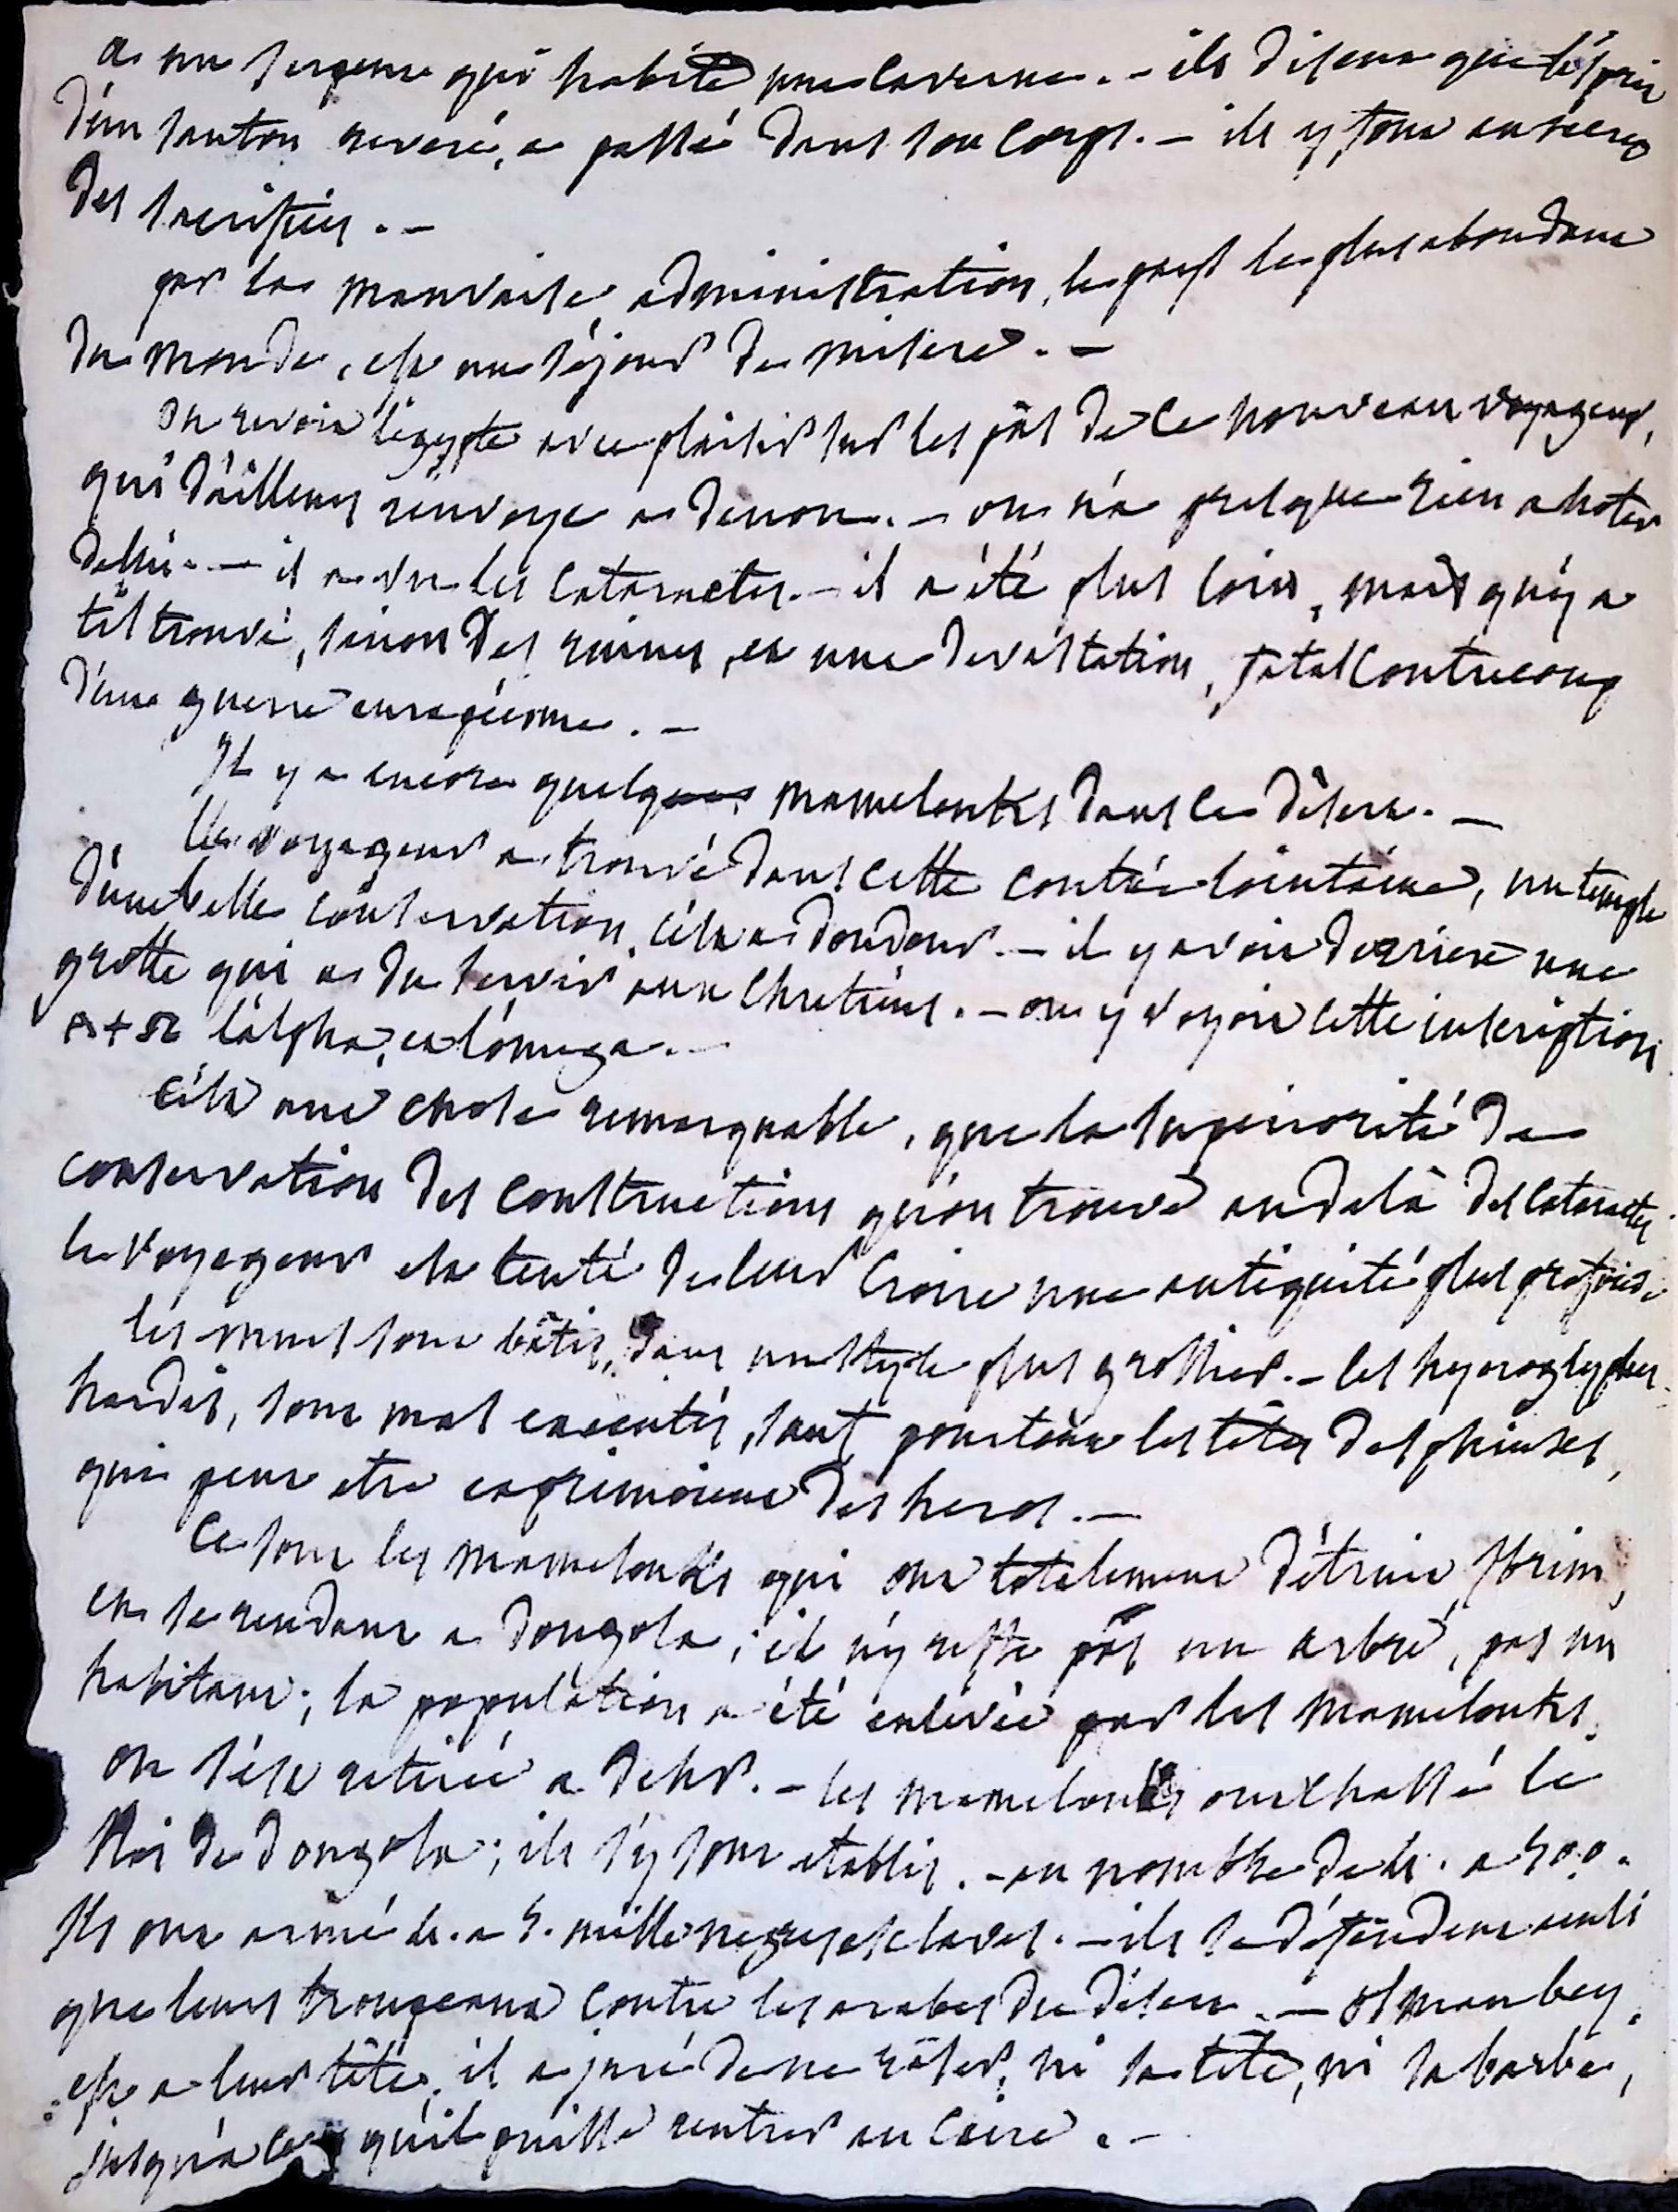 a un serpent qui habite une caverne. - ils disent que l'esprit
d'un santon reveré, a passé dans son corps. - ils y font en secret
des sacrifices. -
par la mauvaise administration, le pays le plus abondant
du monde, est un séjour de misere. -
On revoit l'egypte avec plaisir sur les pas de ce nouveau voyageur,
qui d'ailleurs renvoye a denon. - on n'a presque rien a noter
dessus. - il a vu les cataractes. - il a été plus loin, mais qu'y a
t'il trouvé, sinon des ruines, et une devastation, fatal contrecoup
d'une guerre européenne. -
Il y a encore quelques mamelouks dans le désert. -
le voyageur a trouvé dans cette contrée lointaine, un temple
d'une belle conservation, c'est a dondour. - il y avoit derriere une
grotte qui a du servir aux chretiens. - on y voyoit cette inscription
A + Ω l'alpha, et l'omega. -
C'est une chose remarquable, que la superiorité de
conservation des constructions qu'on trouve au delà des cataractes
le voyageur est tenté de leur croire une antiquité plus profonde
les murs sont bâtis, dans un style plus grossier. - les hyeroglyphes
hardis, sont mal executés, sauf pourtant les têtes des sphinxes,
qui peut etre exprimoient des heros. -
Ce sont les mamelouks qui ont totalement détruit Ibrim,
en se rendant a dongola; il n'y reste pas un arbre, pas un
habitant; la population a été enlevée par les mamelouks.
on s'est retiré a derr. - les mamelouks ont chassé le
Roi de dongola; ils s'y sont etablis. - au nombre de 4. a 500.
Ils ont armé 4. a 5. mille negres esclaves. - ils se défendent ainsi
que leurs troupeaux contre les arabes du désert. - osman bey,
est a leur tête, il a juré de ne raser, ni sa tête, ni sa barbe,
jusqu'a ce qu'il puisse rentrer au Caire. -